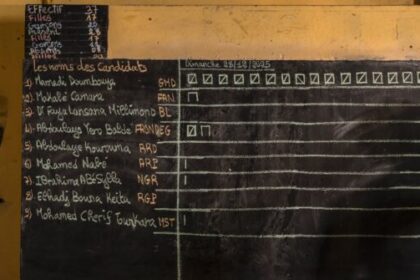 EFFECTIF 37
Filles 17
Garçons 20
Filles 17
Garçons 28
Les noms des Candidats
Dimanche 28/12/2025
1) Mamadi Doumbouya GMD
2) Makalé Camara FAN
3) BL
4) Abdoulaye Yero Baldé FRONDEG
5) Abdoulaye Kourouma RRD
6) Mohamed Nabé ARP
7) Ibrahima Abé Sylla NGR
8) Elhadj Bouna Keita RGP
9) Mohamed Cherif Tounkara MST